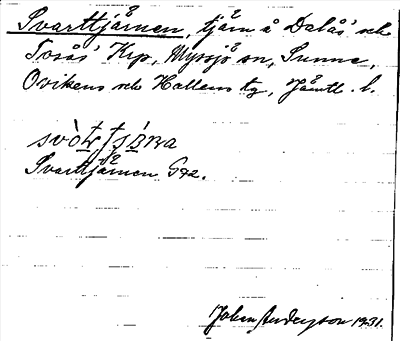 Svarttjärnen, tjärn å Dalås och
Tosås Krp, Myssjö sn, Sunne,
Ovikens och Hallens tg, Jämtl. l.
Svarttjärnen Gr2.
Johan Anderzson 1931.